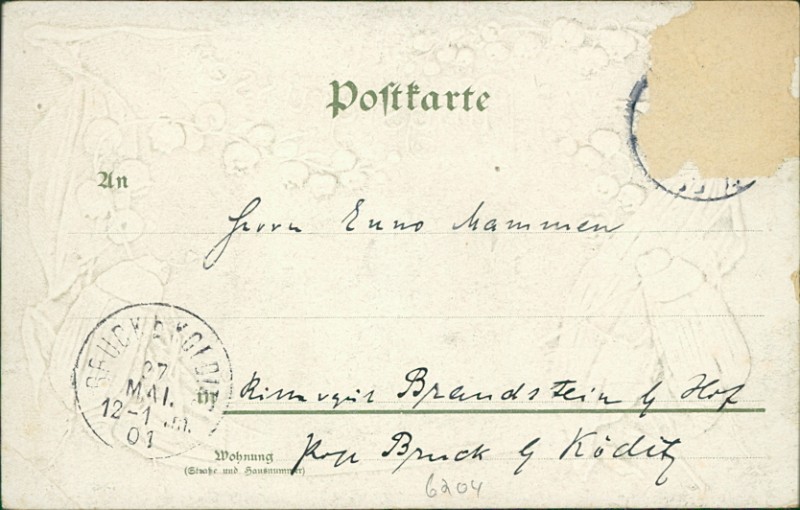 Postkarte
An
Herrn Enno Mammen
BRUCK b. KÖDITZ
27
MAI.
12-1 N.m.
01
in Rittergut Brandstein b/ Hof
Wohnung
(Straße und Hausnummer)
Post Bruck b/ Köditz
6204